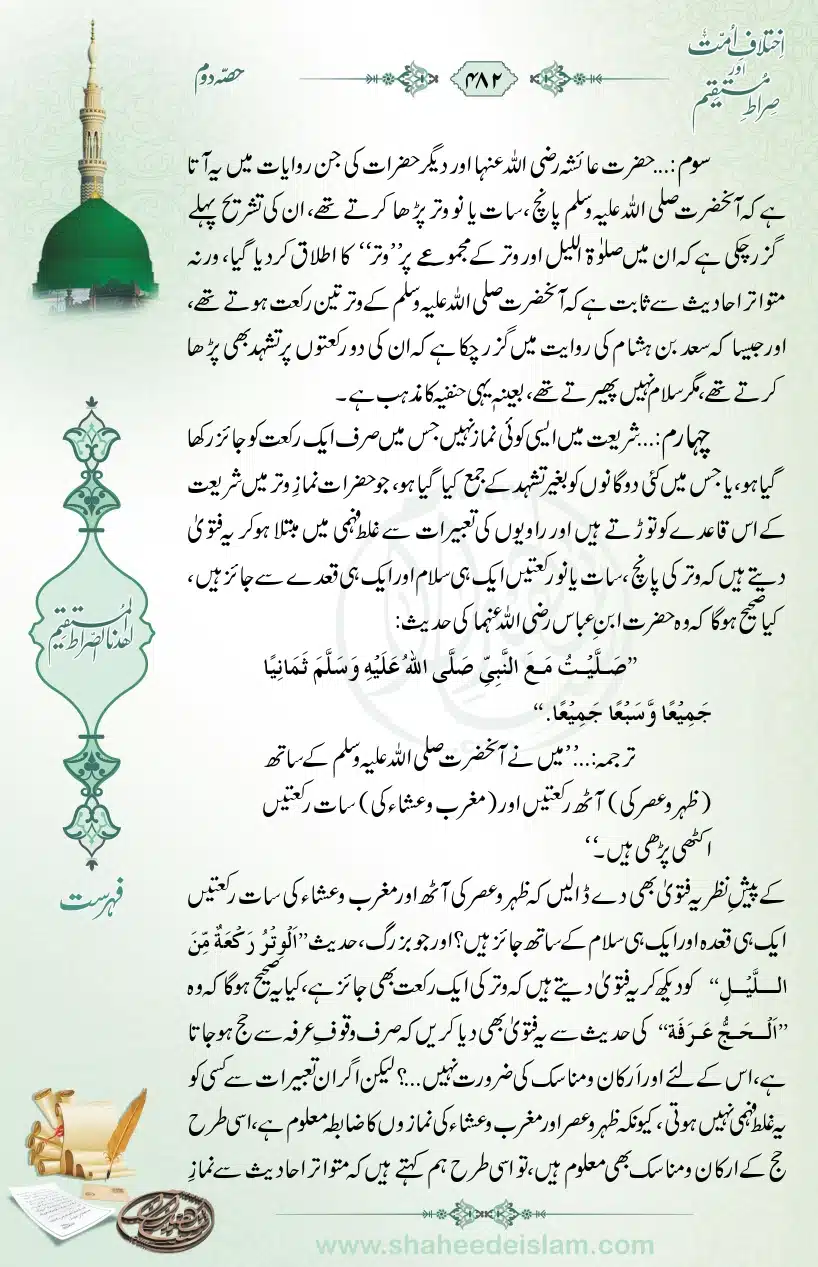 اِختلافِ اُمّت
اور
صراطِ مُستقیم
۴۸۲
حصّہ دوم
سوم:...حضرت عائشہ رضی اللہ عنہا اور دیگر حضرات کی جن روایات میں یہ آتا
ہے کہ آنحضرت صلی اللہ علیہ وسلم پانچ، سات یا نو وتر پڑھا کرتے تھے، ان کی تشریح پہلے
گزر چکی ہے کہ ان میں صلوٰۃ اللیل اور وتر کے مجموعے پر ’’وتر‘‘ کا اطلاق کردیا گیا، ورنہ
متواتر احادیث سے ثابت ہے کہ آنحضرت صلی اللہ علیہ وسلم کے وتر تین رکعت ہوتے تھے،
اور جیسا کہ سعد بن ہشام کی روایت میں گزر چکا ہے کہ ان کی دو رکعتوں پر تشہد بھی پڑھا
کرتے تھے، مگر سلام نہیں پھیرتے تھے، بعینہٖ یہی حنفیہ کا مذہب ہے۔
چہارم:...شریعت میں ایسی کوئی نماز نہیں جس میں صرف ایک رکعت کو جائز رکھا
گیا ہو، یا جس میں کئی دوگانوں کو بغیر تشہد کے جمع کیا گیا ہو، جو حضرات نمازِ وتر میں شریعت
کے اس قاعدے کو توڑتے ہیں اور راویوں کی تعبیرات سے غلط فہمی میں مبتلا ہوکر یہ فتویٰ
دیتے ہیں کہ وتر کی پانچ، سات یا نو رکعتیں ایک ہی سلام اور ایک ہی قعدے سے جائز ہیں،
کیا صحیح ہوگا کہ وہ حضرت ابنِ عباس رضی اللہ عنہما کی حدیث:
’’صَلَّیْتُ مَعَ النَّبِیِّ صَلَّی اللهُ عَلَیْهِ وَسَلَّمَ ثَمَانِیًا
جَمِیْعًا وَّسَبْعًا جَمِیْعًا.‘‘
ترجمہ:...’’میں نے آنحضرت صلی اللہ علیہ وسلم کے ساتھ
(ظہر و عصر کی) آٹھ رکعتیں اور (مغرب و عشاء کی) سات رکعتیں
اکٹھی پڑھی ہیں۔‘‘
کے پیشِ نظر یہ فتویٰ بھی دے ڈالیں کہ ظہر و عصر کی آٹھ اور مغرب و عشاء کی سات رکعتیں
ایک ہی قعدہ اور ایک ہی سلام کے ساتھ جائز ہیں؟ اور جو بزرگ، حدیث ’’اَلْوِتْرُ رَکْعَةٌ مِّنَ
اللَّیْلِ‘‘ کو دیکھ کر یہ فتویٰ دیتے ہیں کہ وتر کی ایک رکعت بھی جائز ہے، کیا یہ صحیح ہوگا کہ وہ
’’اَلْحَجُّ عَرَفَة‘‘ کی حدیث سے یہ فتویٰ بھی دیا کریں کہ صرف وقوفِ عرفہ سے حج ہوجاتا
ہے، اس کے لئے اور اَرکان و مناسک کی ضرورت نہیں...؟ لیکن اگر ان تعبیرات سے کسی کو
یہ غلط فہمی نہیں ہوتی، کیونکہ ظہر و عصر اور مغرب و عشاء کی نمازوں کا ضابطہ معلوم ہے، اسی طرح
حج کے ارکان و مناسک بھی معلوم ہیں، تو اسی طرح ہم کہتے ہیں کہ متواتر احادیث سے نمازِ
اهدنا الصراط المستقیم
فہرست
www.shaheedeislam.com